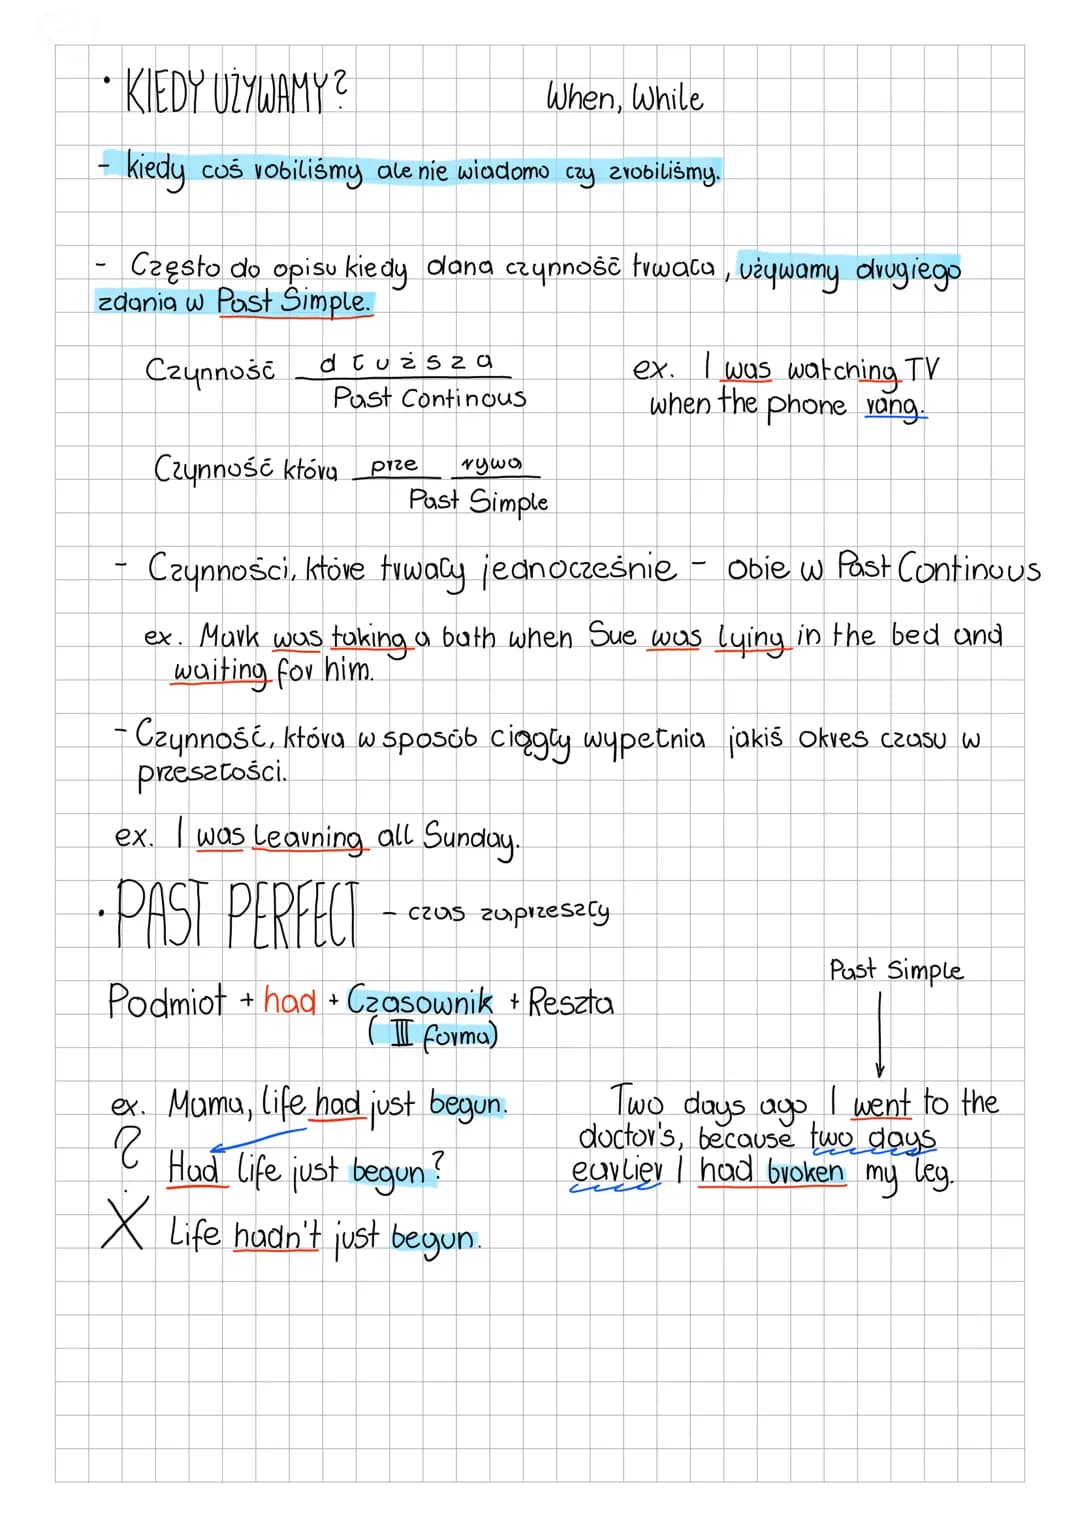 • KIEDY UŻYWAMY?
When, While
- kiedy coś robiliśmy ale nie wiadomo czy zrobiliśmy.
- Często do opisu kiedy dana czynność trwała, używamy drugiego
zdania w Past Simple.
Czynność dłuższa
Past Continous
ex. I was watching TV
when the phone rang.
Czynność która prze rywa
Past Simple
- Czynności, które trwały jednocześnie - obie w Past Continuus
ex. Mark was taking a bath when Sue was lying in the bed and
waiting for him.
- Czynność, która w sposób ciągły wypełnia jakiś okres czasu w
przeszłości.
ex. I was learning all Sunday.
• PAST PERFECT - czas zaprzeszły
Podmiot + had + Czasownik + Reszta
(III forma)
Past Simple
ex. Mama, life had just begun.
? Had life just begun?
X Life hadn't just begun.
Two days ago I went to the
doctor's, because two days
earlier I had broken my leg.